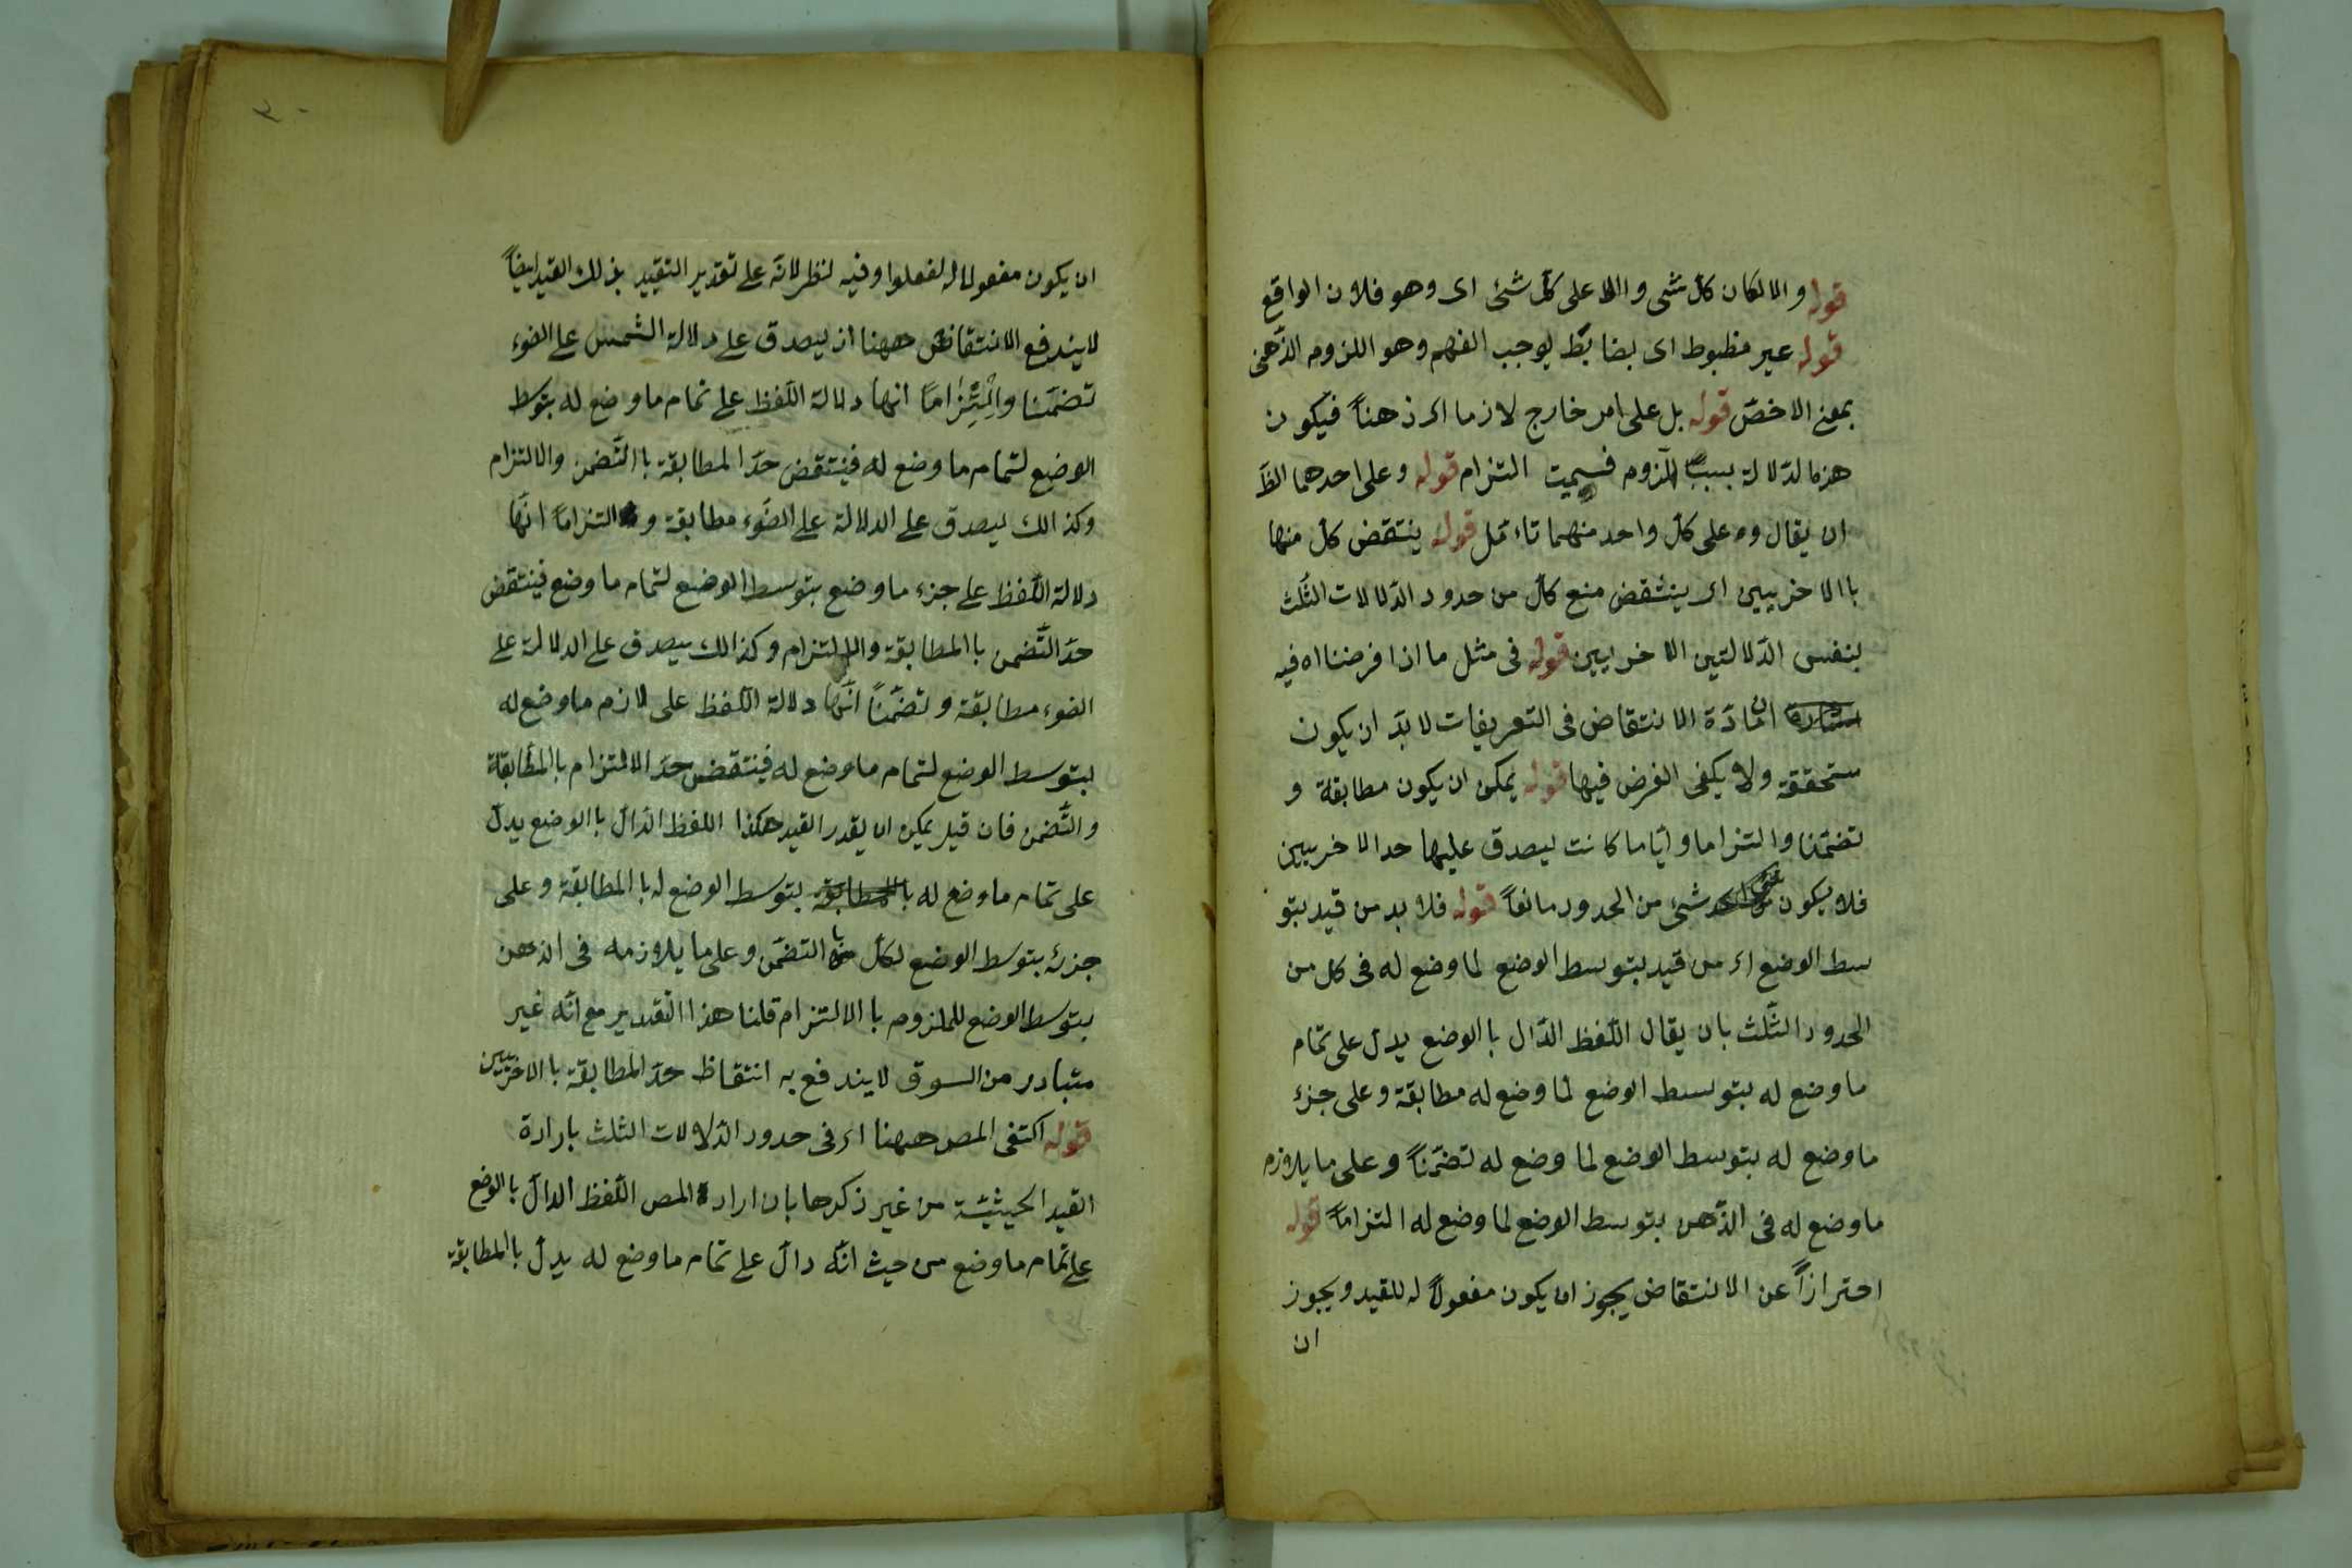 قوله والا لكان كلّ شى والا على كلّ شئ اى وهو فلان الواقع
قوله غير مظبوط اى بضابطٍ يوجب الفهم وهو اللزوم الذّهنى
بمعنى الاخصّ قوله بل على امر خارج لازما اى ذهناً فيكون
هذه الدّلالة بسبب اللّزوم فسميت التزام قوله وعلى احدهما الظّ
ان يقال وعلى كلّ واحد منهما تاءمّل قوله ينتقض كلّ منها
باالاخريين اى ينتقض منع كلّ من حدود الدّلالات الثّلث
بنفس الدّلالتين الاخريين قوله فى مثل ما اذا فرضنا اه فيه
انّ مادّة الانتقاض فى التعريفات لا بدّ ان يكون
ستحققة ولا يكفى الفرض فيها قوله يمكن ان يكون مطابقة و
تضمّنا والتزاما وايّاما كانت ليصدق عليها حد الاخريين
فلا يكون شئ من الحدود مانعاً قوله فلا بد من قيد بتو
سط الوضع اى من قيد بتوسط الوضع لما وضع له فى كل من
الحدود الثّلث بان يقال اللّفظ الدّال باالوضع يدل على تمام
ما وضع له بتوسط الوضع لما وضع له مطابقة وعلى جزء
ما وضع له بتوسط الوضع لما وضع له تضمّناً وعلى ما يلازم
ما وضع له فى الذّهن بتوسط الوضع لما وضع له التزاماً قوله
احترازاً عن الانتقاض يجوز ان يكون مفعولاً له للقيد ويجوز
ان
٣٠
ان يكون مفعولا له لفعلوا وفيه لنظر لانّه على تقدير التقييد بذلك القيد ايضاً
لا يندفع الانتقاض ههنا اذ ليصدق على دلالة الشمس على الضوء
تضمّنا والتزاما انها دلالة اللّفظ على تمام ما وضع له بتوسط
الوضع لتمام ما وضع له فينتقض حدّ المطابقة باالتّضمن والالتزام
وكذالك ليصدق على الدلالة على الضّوء مطابقة و التزاماً انّها
دلالة اللّفظ على جزء ما وضع بتوسط الوضع لتمام ما وضع فينتقض
حدّ التّضمن باالمطابقة والالتزام وكذالك يصدق على الدلالة على
الضوء مطابقة وتضمّناً انّها دلالة اللّفظ على لازم ما وضع له
بتوسط الوضع لتمام ما وضع له فينتقض حدّ الالتزام باالمطابقة
والتّضمن فان قيل يمكن ان يقدر القيد هكذا اللفظ الدّال باالوضع يدلّ
على تمام ما وضع له بتوسط الوضع له باالمطابقة وعلى
جزئه بتوسط الوضع لكلّ باالتضمّن وعلى ما يلازمه فى الذهن
بتوسط الوضع للملزوم باالالتزام قلنا هذا التّقدير مع انّه غير
متبادر من السوق لا يندفع به انتقاظ حدّ المطابقة باالاخريين
قوله اكتفى المص ههنا اى فى حدود الدّلالات الثلث بارادة
القيد الحيثيّة من غير ذكرها بان اراد المص اللّفظ الدالّ باالوضع
على تمام ما وضع من حيث انّه دالّ على تمام ما وضع له يدلّ باالمطابقة